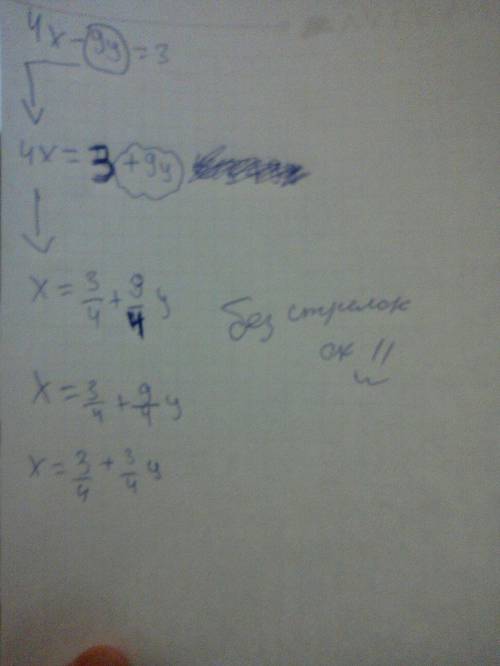 4x - 9y = 3
4x = 3 + 9y
x = 3/4 + 9/4 y
без стрелок
x = 3/4 + 9/4 y
x = 3/4 + 3/4 y